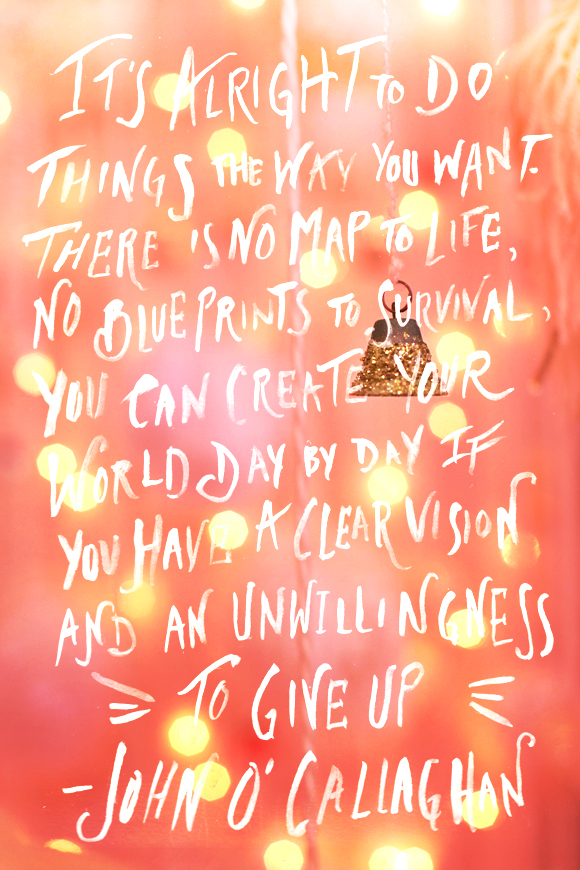 IT'S ALRIGHT TO DO
THINGS THE WAY YOU WANT.
THERE IS NO MAP TO LIFE,
NO BLUEPRINTS TO SURVIVAL,
YOU CAN CREATE YOUR
WORLD DAY BY DAY IF
YOU HAVE A CLEAR VISION
AND AN UNWILLINGNESS
TO GIVE UP
-JOHN O'CALLAGHAN